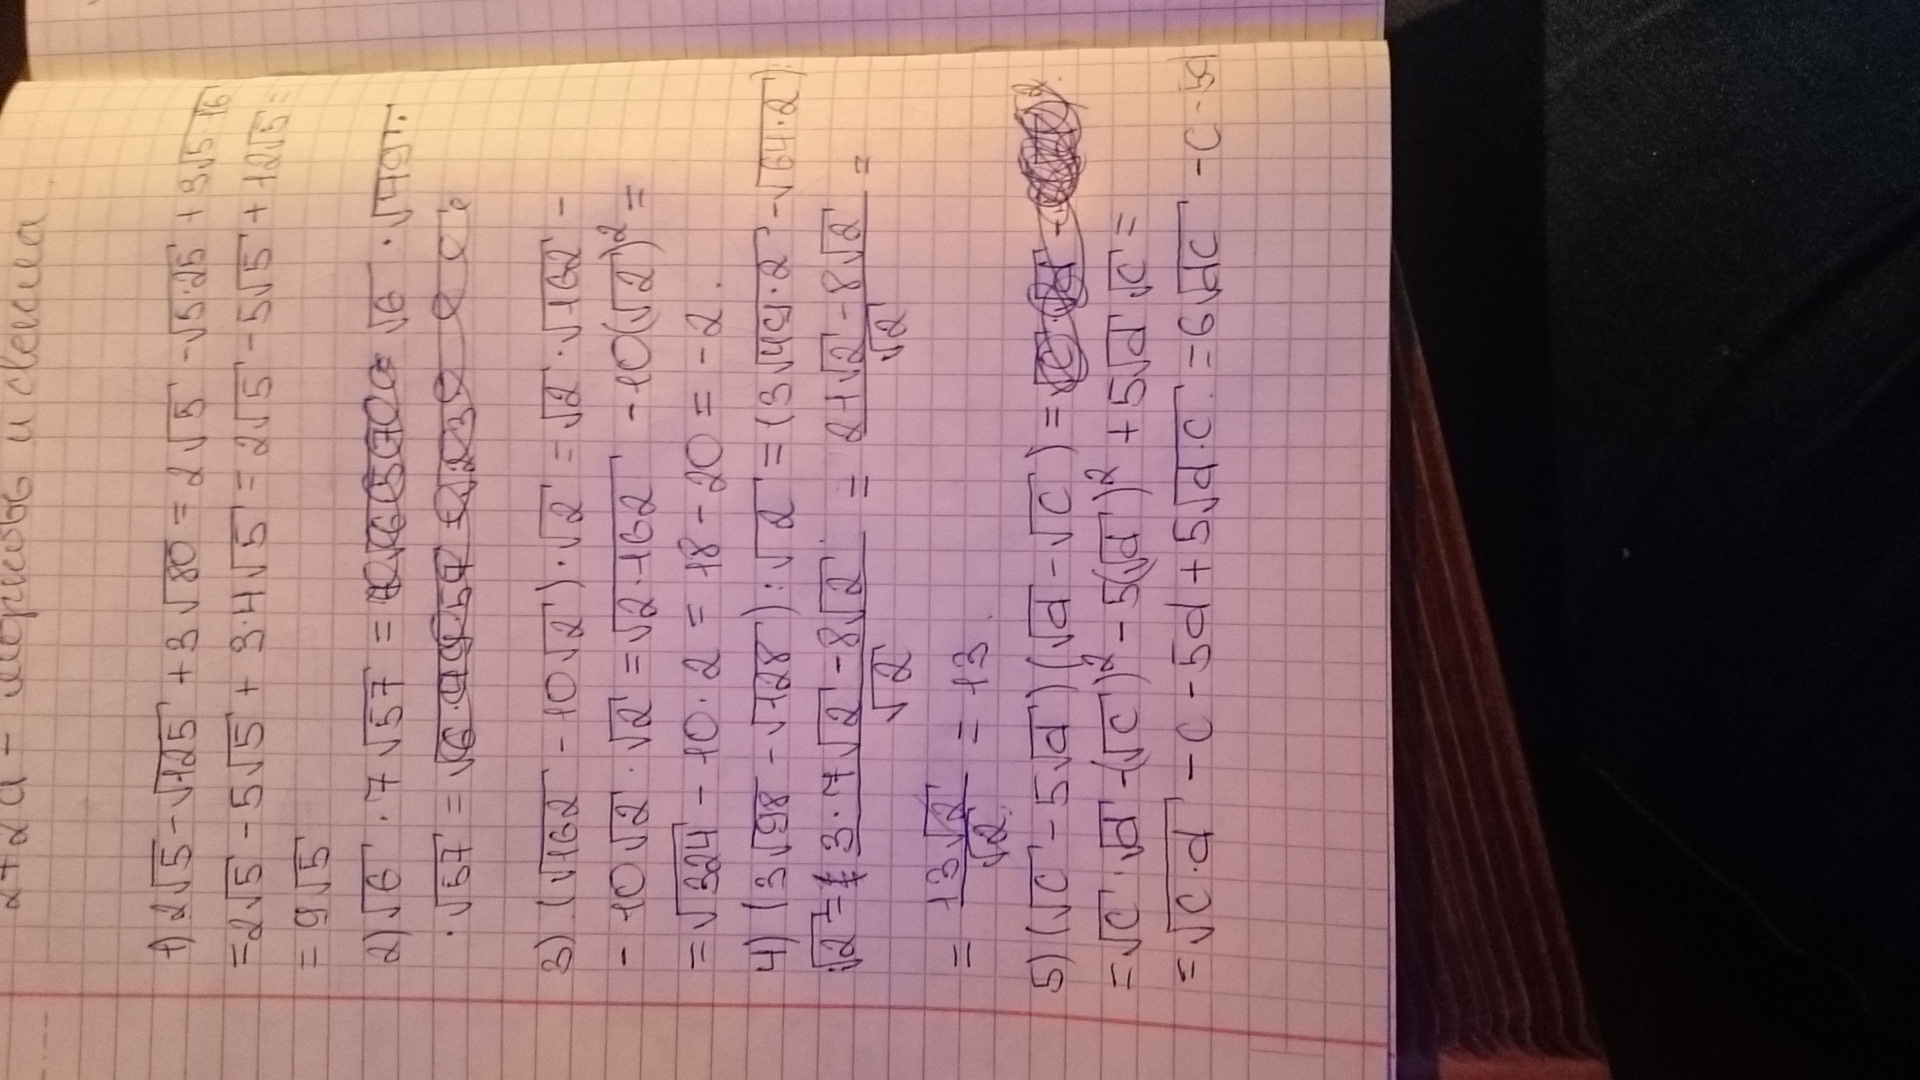 2+2a - морковь и свекла
1) 2√5 - √125 + 3√80 = 2√5 - √5·25 + 3√5·16
= 2√5 - 5√5 + 3·4√5 = 2√5 - 5√5 + 12√5 =
= 9√5
2) √6 · 7√57 = √6 · √49 ·
· √57 =
3) (√162 - 10√2) · √2 = √2 · √162 -
- 10√2 · √2 = √2·162 - 10(√2)² =
= √324 - 10 · 2 = 18 - 20 = -2.
4) (3√98 - √128) : √2 = (3√49·2 - √64·2) :
: √2 = 3·7√2 - 8√2 / √2 = 21√2 - 8√2 / √2 =
= 13√2 / √2 = 13.
5) (√c - 5√d)(√d - √c) =
= √c · √d - (√c)² - 5(√d)² + 5√d √c =
= √c·d - c - 5d + 5√d·c = 6√dc - c - 5d